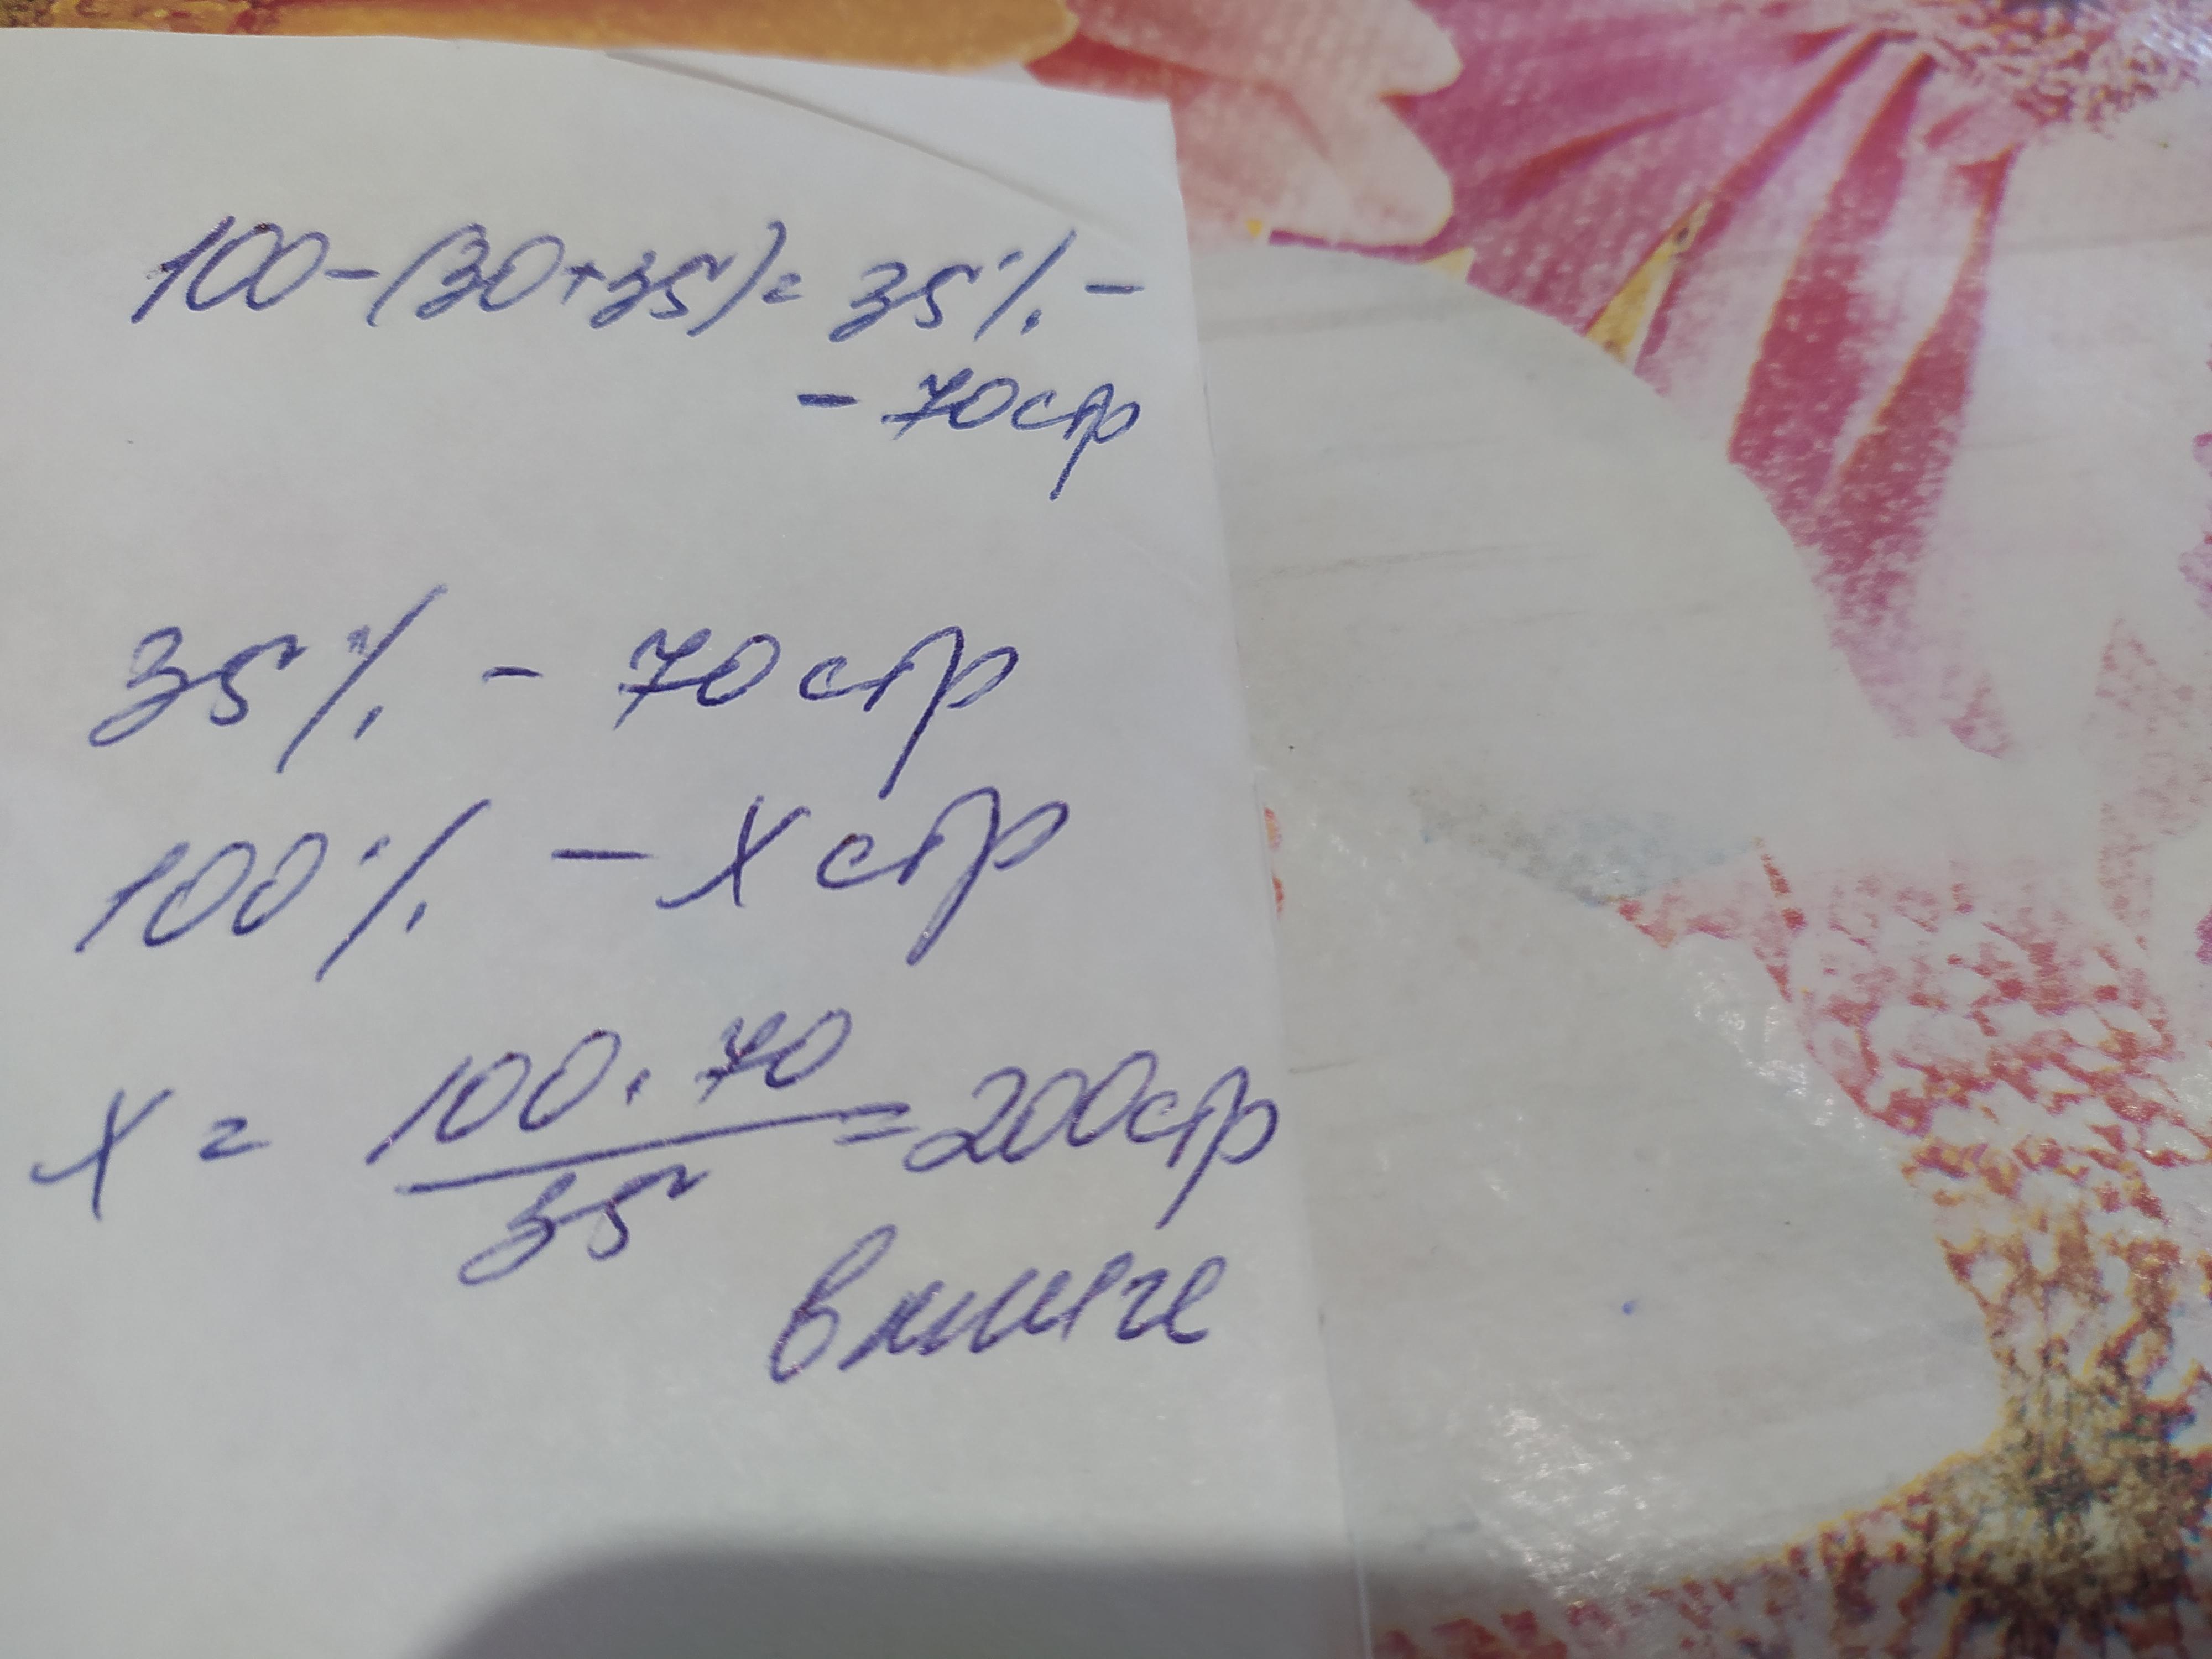 100-(30+35)=35%-
-70стр
35% - 70стр
100% - х стр
100.70
х = = 200стр
35
в книге